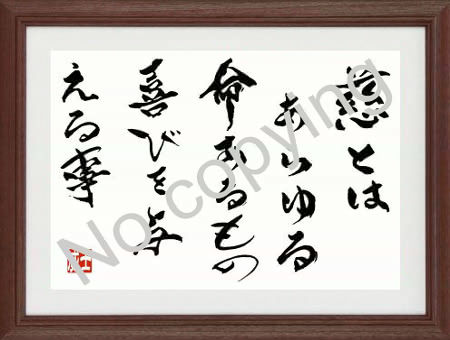 慈とは
あらゆる
命あるもの
喜びを与
える事
No copying